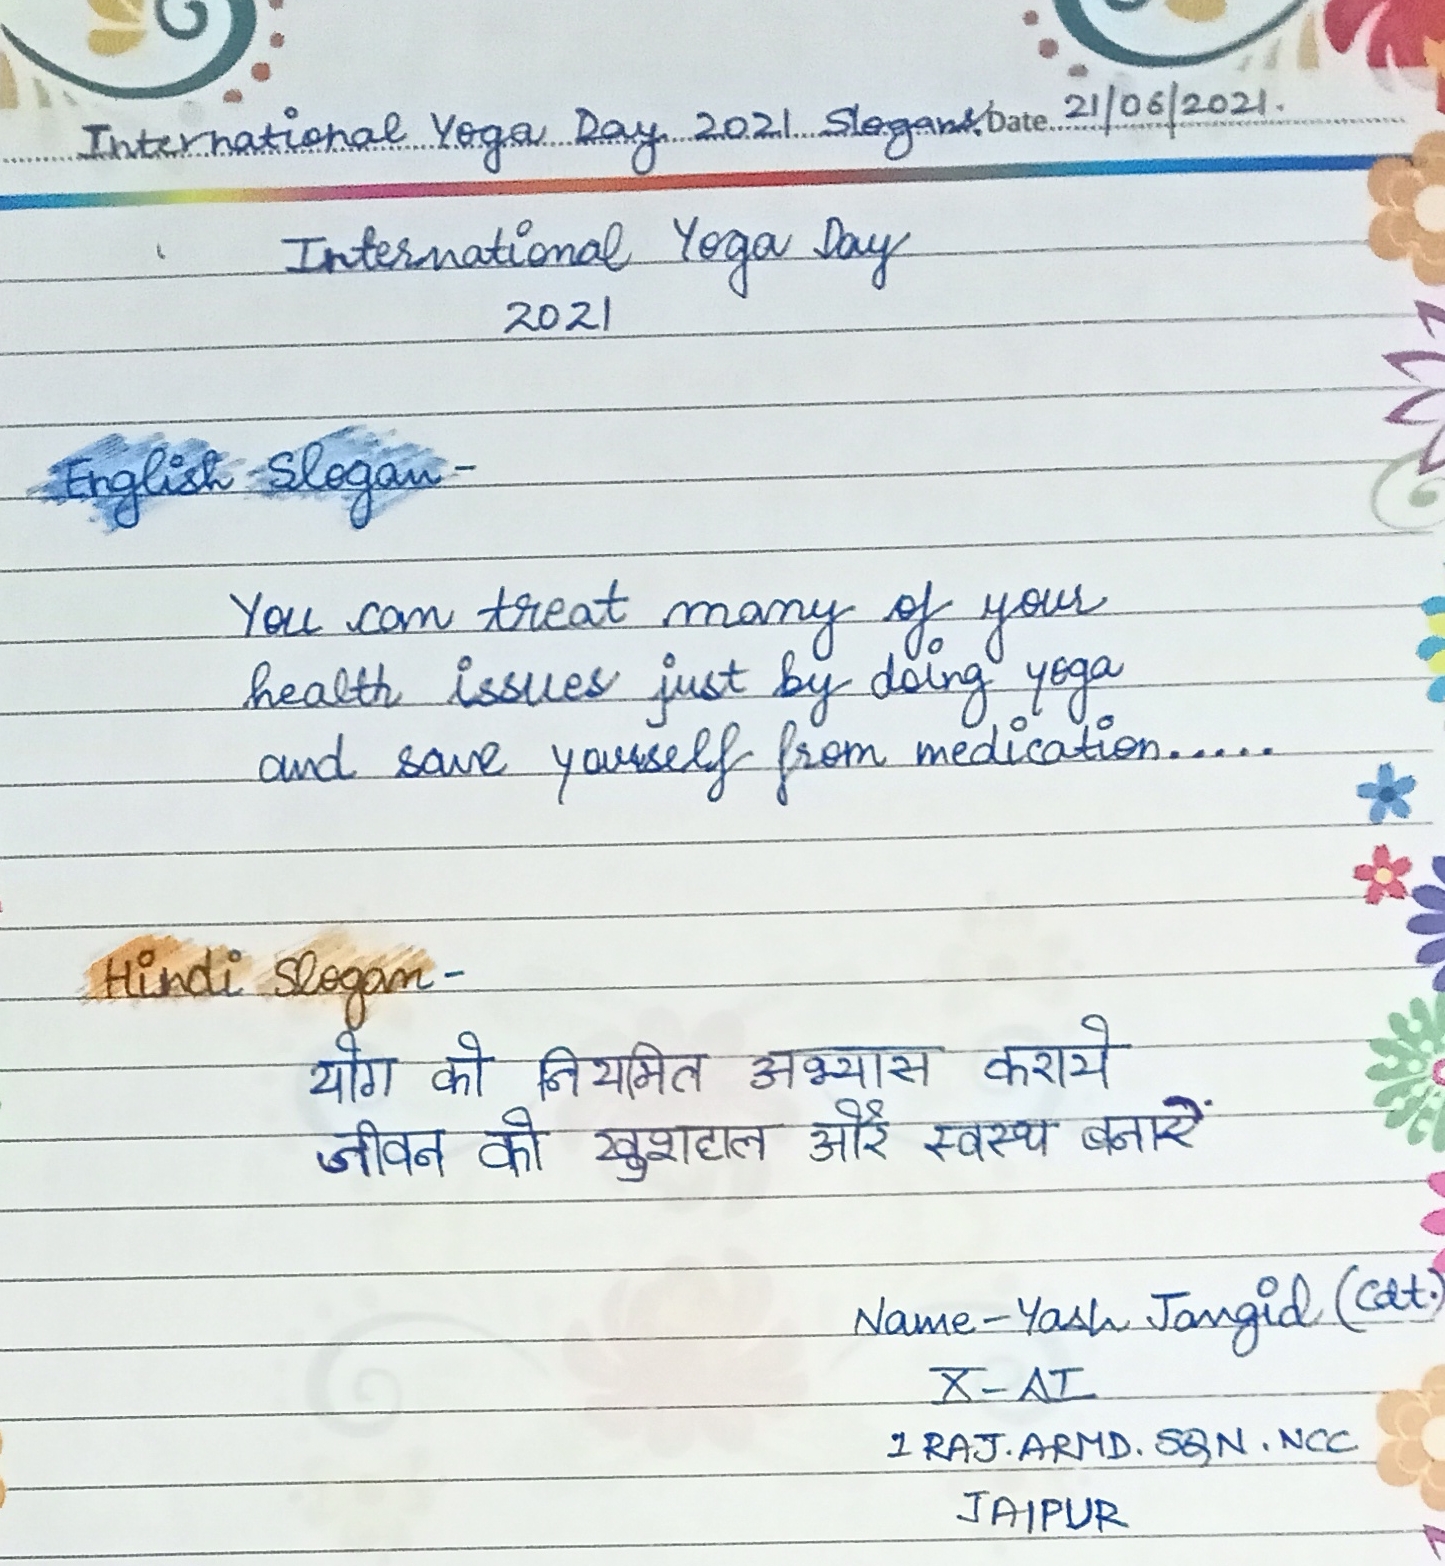 International Yoga Day 2021 Slogans. Date 21/06/2021.
International Yoga Day
2021
English Slogan-
You can treat many of your
health issues just by doing yoga
and save yourself from medication.....
Hindi Slogan-
योग को नियमित अभ्यास कराये
जीवन को खुशहाल और स्वस्थ बनाऐं
Name-Yash Jangid (Cdt.)
X-AI
1 RAJ. ARMD. SQN. NCC
JAIPUR